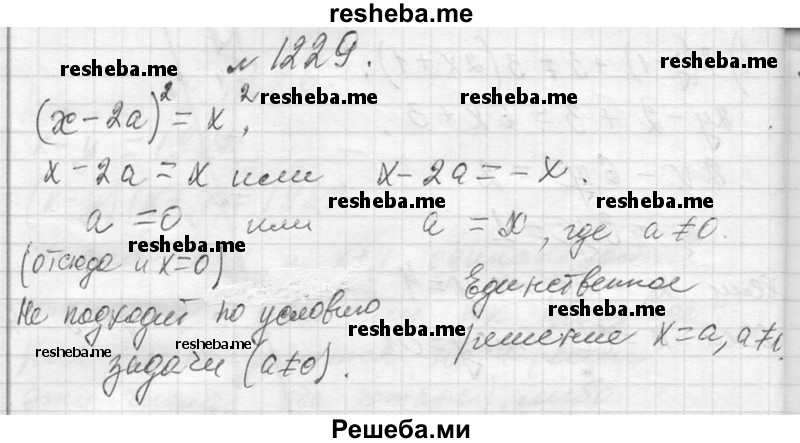 resheba.me
№ 1229.
resheba.me
resheba.me resheba.me
(x - 2a)² = x²,
x - 2a = x или x - 2a = -x.
resheba.me resheba.me
a = 0 или a = x, где a ≠ 0.
resheba.me
(отсюда и x=0)
Единственное
Не подходит по условию
resheba.me resheba.me
решение x = a, a ≠
задачи (a≠0).
Решеба.ми